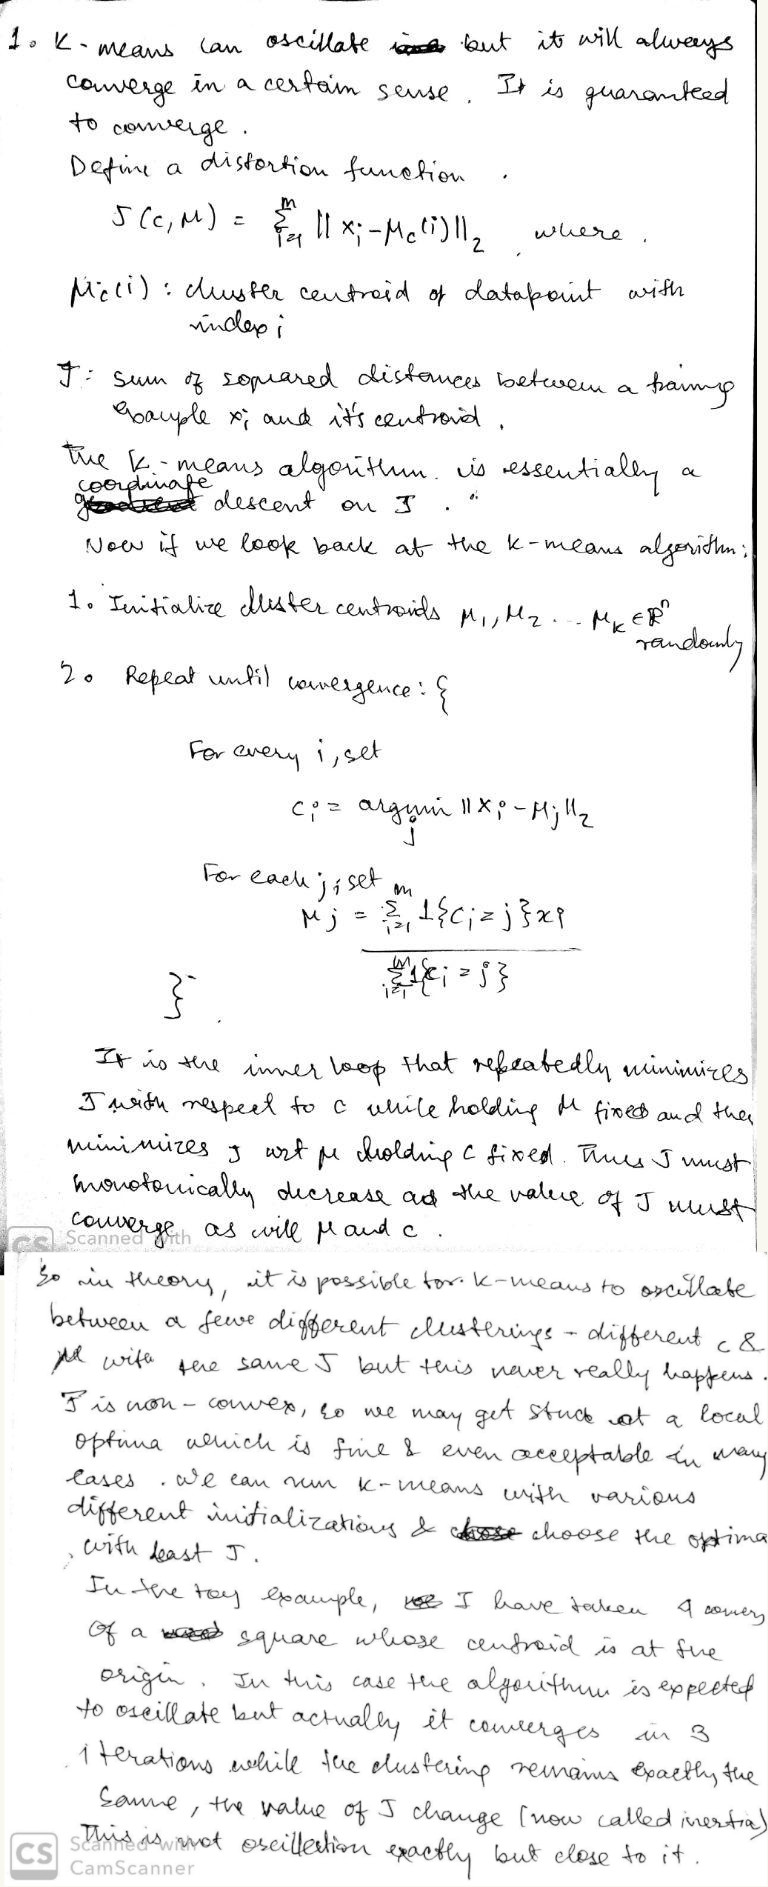 1. K-means can oscillate but it will always
converge in a certain sense. It is guaranteed
to converge.
Define a distortion function.
J(c, μ) = Σ_{i=1}^{m} || x_i - μ_c(i) ||_2, where.
μ_c(i) : cluster centroid of datapoint with
index i
J: sum of squared distances between a training
example x_i and it's centroid.
The K-means algorithm is essentially a
coordinate
descent on J.
Now if we look back at the k-means algorithm:
1. Initialize cluster centroids μ_1, μ_2 ... μ_K ∈ ℝ^n
randomly
2. Repeat until convergence: {
For every i, set
c_i = argmin_j || x_i - μ_j ||_2
For each j, set
μ_j = Σ_{i=1}^{m} 1{c_i = j} x_i
Σ_{i=1}^{m} 1{c_i = j}
}
It is the inner loop that repeatedly minimizes
J with respect to c while holding μ fixed and then
minimizes J wrt μ holding c fixed. Thus J must
monotonically decrease and the value of J must
converge as will μ and c.
CS Scanned with
So in theory, it is possible for k-means to oscillate
between a few different clusterings - different c &
μ with the same J but this never really happens.
J is non-convex, so we may get stuck at a local
optima which is fine & even acceptable in many
cases. We can run k-means with various
different initializations & choose the optima
with least J.
In the toy example, I have taken 4 corners
of a square whose centroid is at the
origin. In this case the algorithm is expected
to oscillate but actually it converges in 3
iterations while the clustering remains exactly the
same, the value of J change (now called inertia)
This is not oscillation exactly but close to it.
CS Scanned with
CamScanner